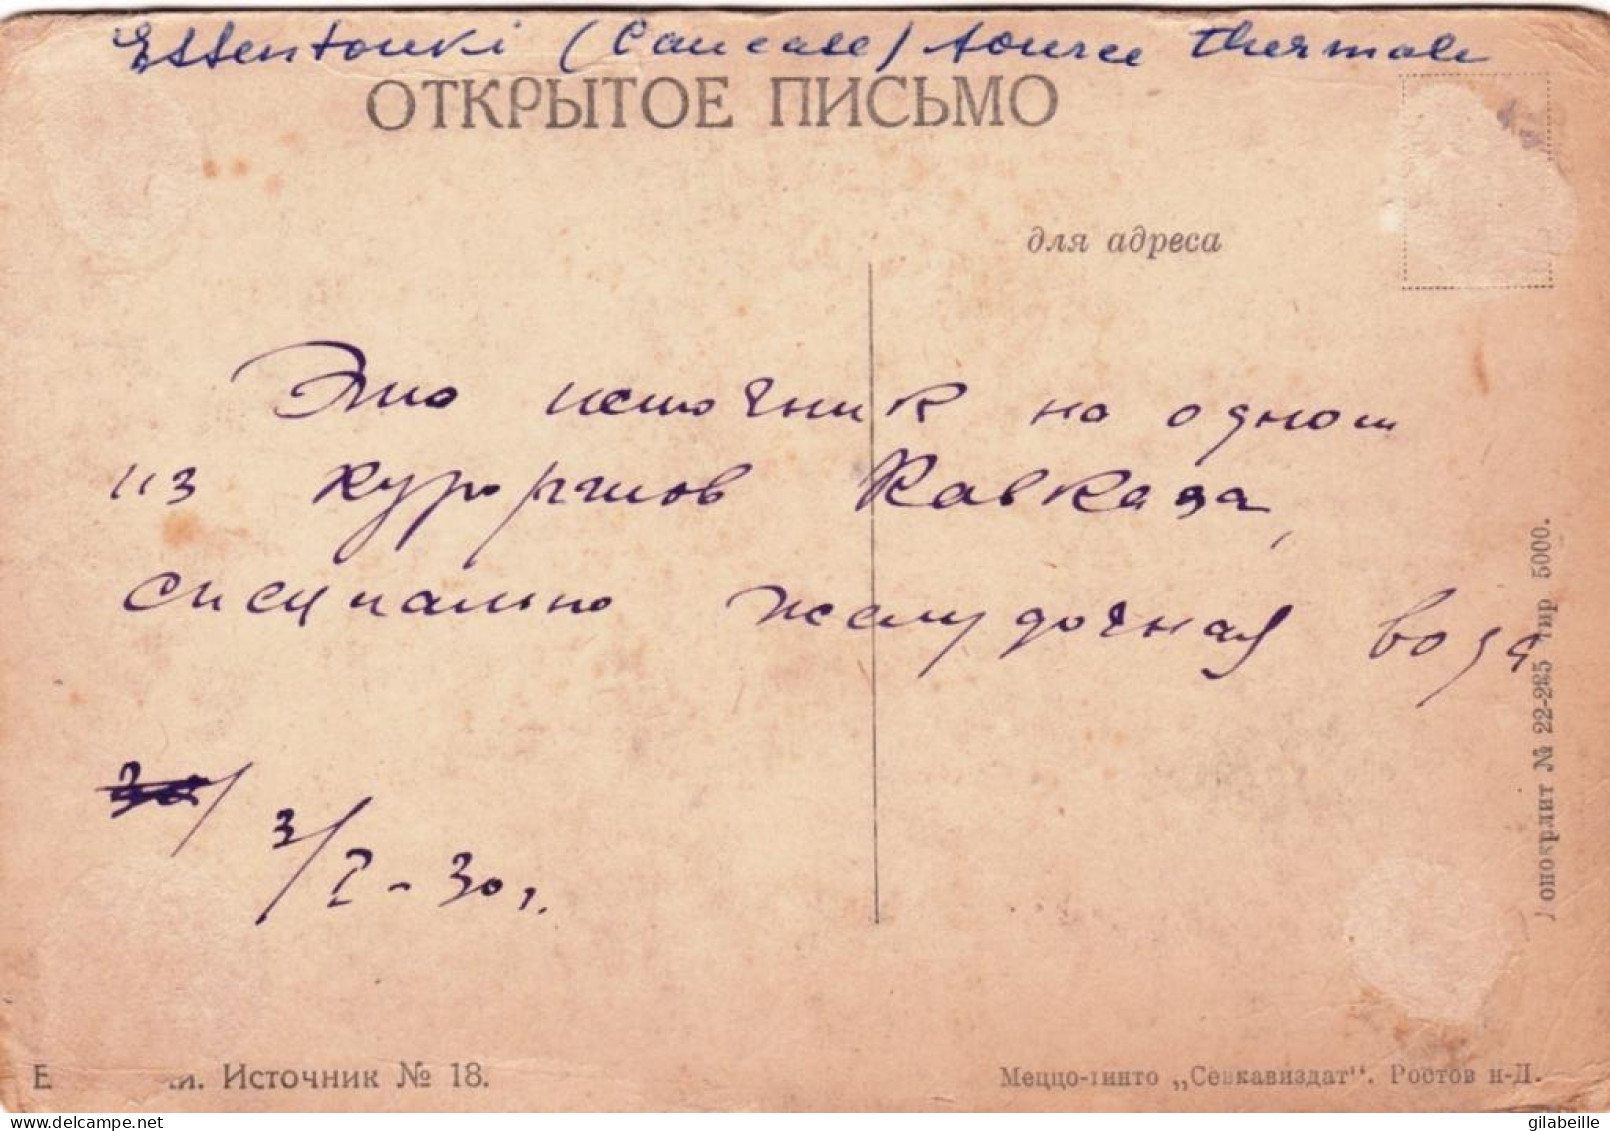 Essentouki (Caucase) source thermale
ОТКРЫТОЕ ПИСЬМО
для адреса
Это источник на одном
из курортов Кавказа,
специально желудочная вода
3/I - 30 г.
Е и. Источник № 18.
Меццо-тинто „Севкавиздат". Ростов н-Д.
№ 22-285 тир 5000.
gilabeille